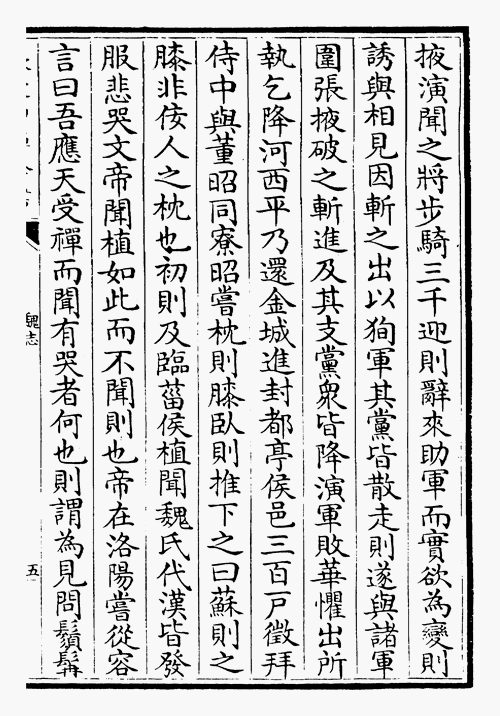 掖演聞之將步騎三千迎則辭來助軍而實欲為變則
誘與相見因斬之出以狥軍其黨皆散走則遂與諸軍
圍張掖破之斬進及其支黨衆皆降演軍敗華懼出所
執乞降河西平乃還金城進封都亭侯邑三百戶徵拜
侍中與董昭同寮昭嘗枕則膝臥則推下之曰蘇則之
膝非佞人之枕也初則及臨菑侯植聞魏氏代漢皆發
服悲哭文帝聞植如此而不聞則也帝在洛陽嘗從容
言曰吾應天受禪而聞有哭者何也則謂為見問鬚髯
魏志
五